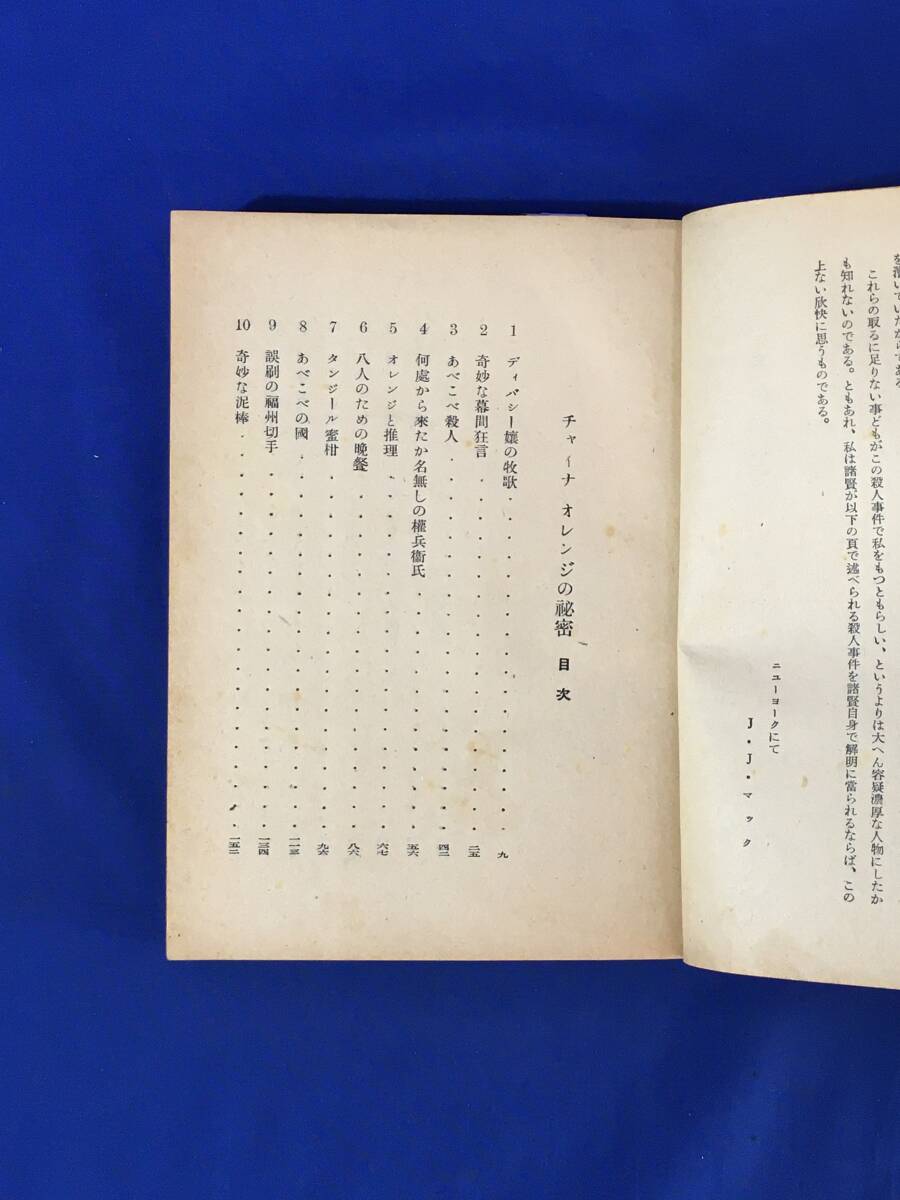 これらの取るに足りない事どもがこの殺人事件で私をもつともらしい、というよりは大へん容疑濃厚な人物にしたか
も知れないのである。ともあれ、私は諸賢が以下の頁で述べられる殺人事件を諸賢自身で解明に當られるならば、この
上ない欣快に思うものである。
ニューヨークにて
J・J・マック
チャイナ オレンジの祕密 目次
1 ディバシー孃の牧歌・・・・・・・・・・・九
2 奇妙な幕間狂言・・・・・・・・・・・・二五
3 あべこべ殺人・・・・・・・・・・・・・四二
4 何處から來たか名無しの權兵衞氏・・・・・・・・・五六
5 オレンジと推理・・・・・・・・・・・・六七
6 八人のための晩餐・・・・・・・・・・・・八六
7 タンジール蜜柑・・・・・・・・・・・・九六
8 あべこべの國・・・・・・・・・・・・・一一三
9 誤刷の福州切手・・・・・・・・・・・・一三四
10 奇妙な泥棒・・・・・・・・・・・・・・一五二